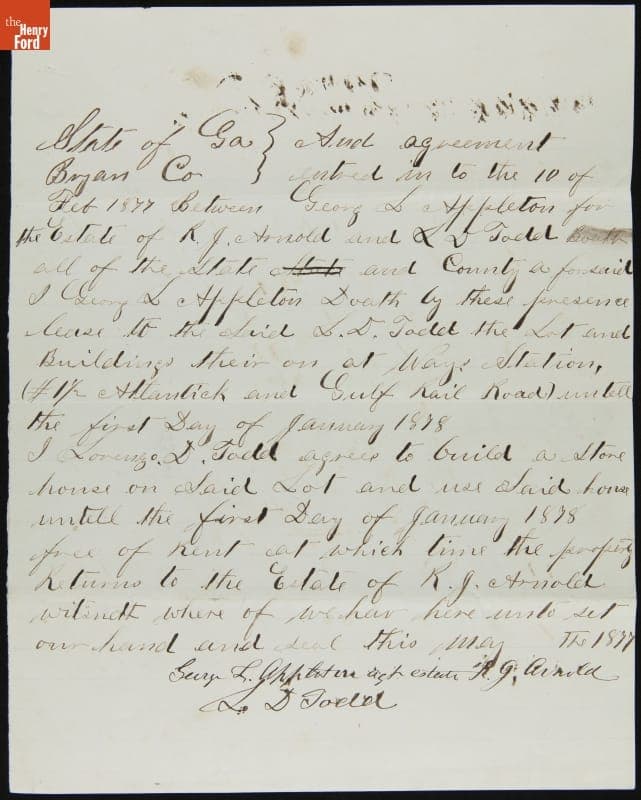 the
Henry
Ford
State of Ga } And agreement
Bryan Co } entred in to the 10 of
Feb 1877 Between Georg L Appleton for
the Estate of R. J. Arnold and L D Todd Boath
all of the State State and County a forsaid
I Georg L Appleton Doath by these presence
lease to the Said L. D. Todd the Lot and
Buildings their on at Ways Station,
(#1½ Atlantick and Gulf Rail Road) untell
the first Day of January 1878
I Lorenzo. D. Todd agrees to build a Store
house on Said Lot and use Said house
untell the first Day of January 1878
free of Rent at which time the property
Returns to the Estate of R. J. Arnold
where of we hav here unto set
our hand and seal this May The 1877
George L. Appleton agt estate R. J. Arnold
L D Todd